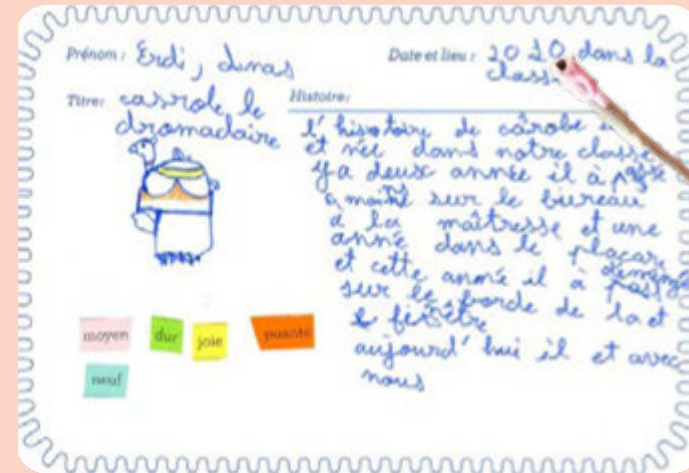 Prénom : Erdi, Linas
Date et lieu : 2020 dans la
classe
Titre: carrole le
dromadaire
Histoire:
l'histoire de cârobe
et née dans notre classe
y a deux année il à passé
sur le bureau
a la maîtresse et une
anné dans le placare
et cette anné il à
sur le borde de la et
fenêtre
aujourd'hui il et avec
nous
moyen
dur
joie
neuf